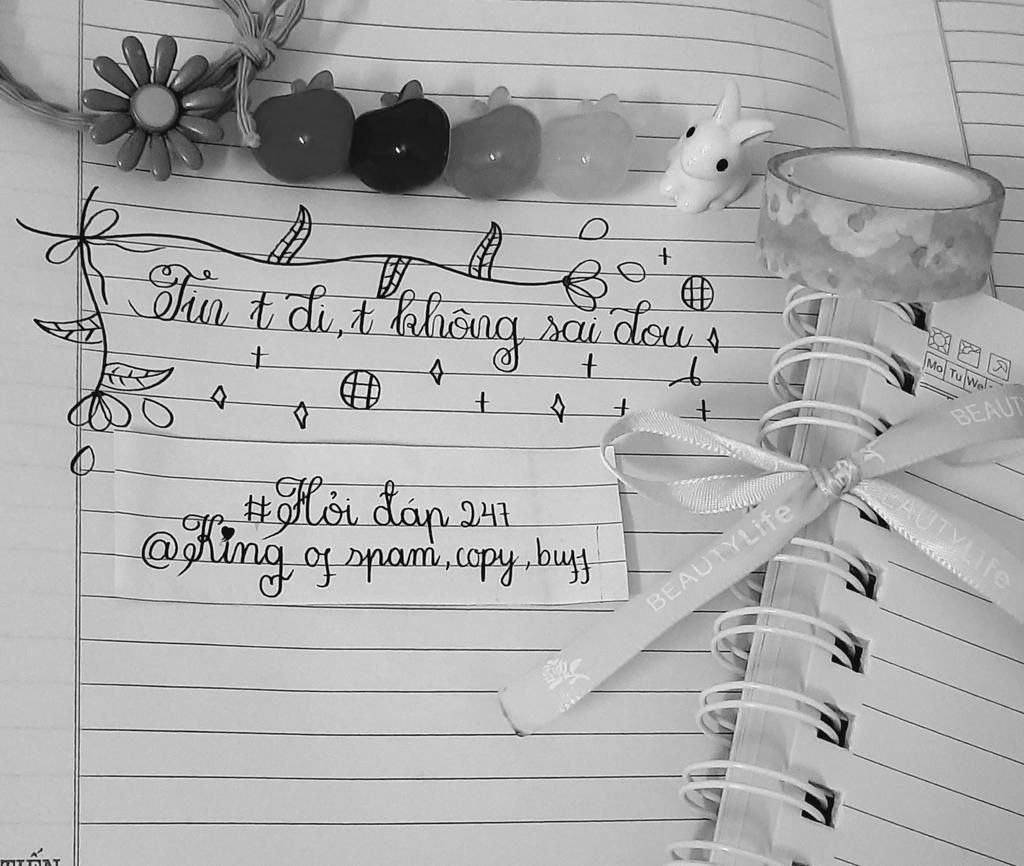 Tin t đi, t không sai đou
Mo Tu We
BEAUTY
#Hỏi đáp 247
@King of spam, copy, buff
BEAUTYLife
BEAUTYLife
TIẾN